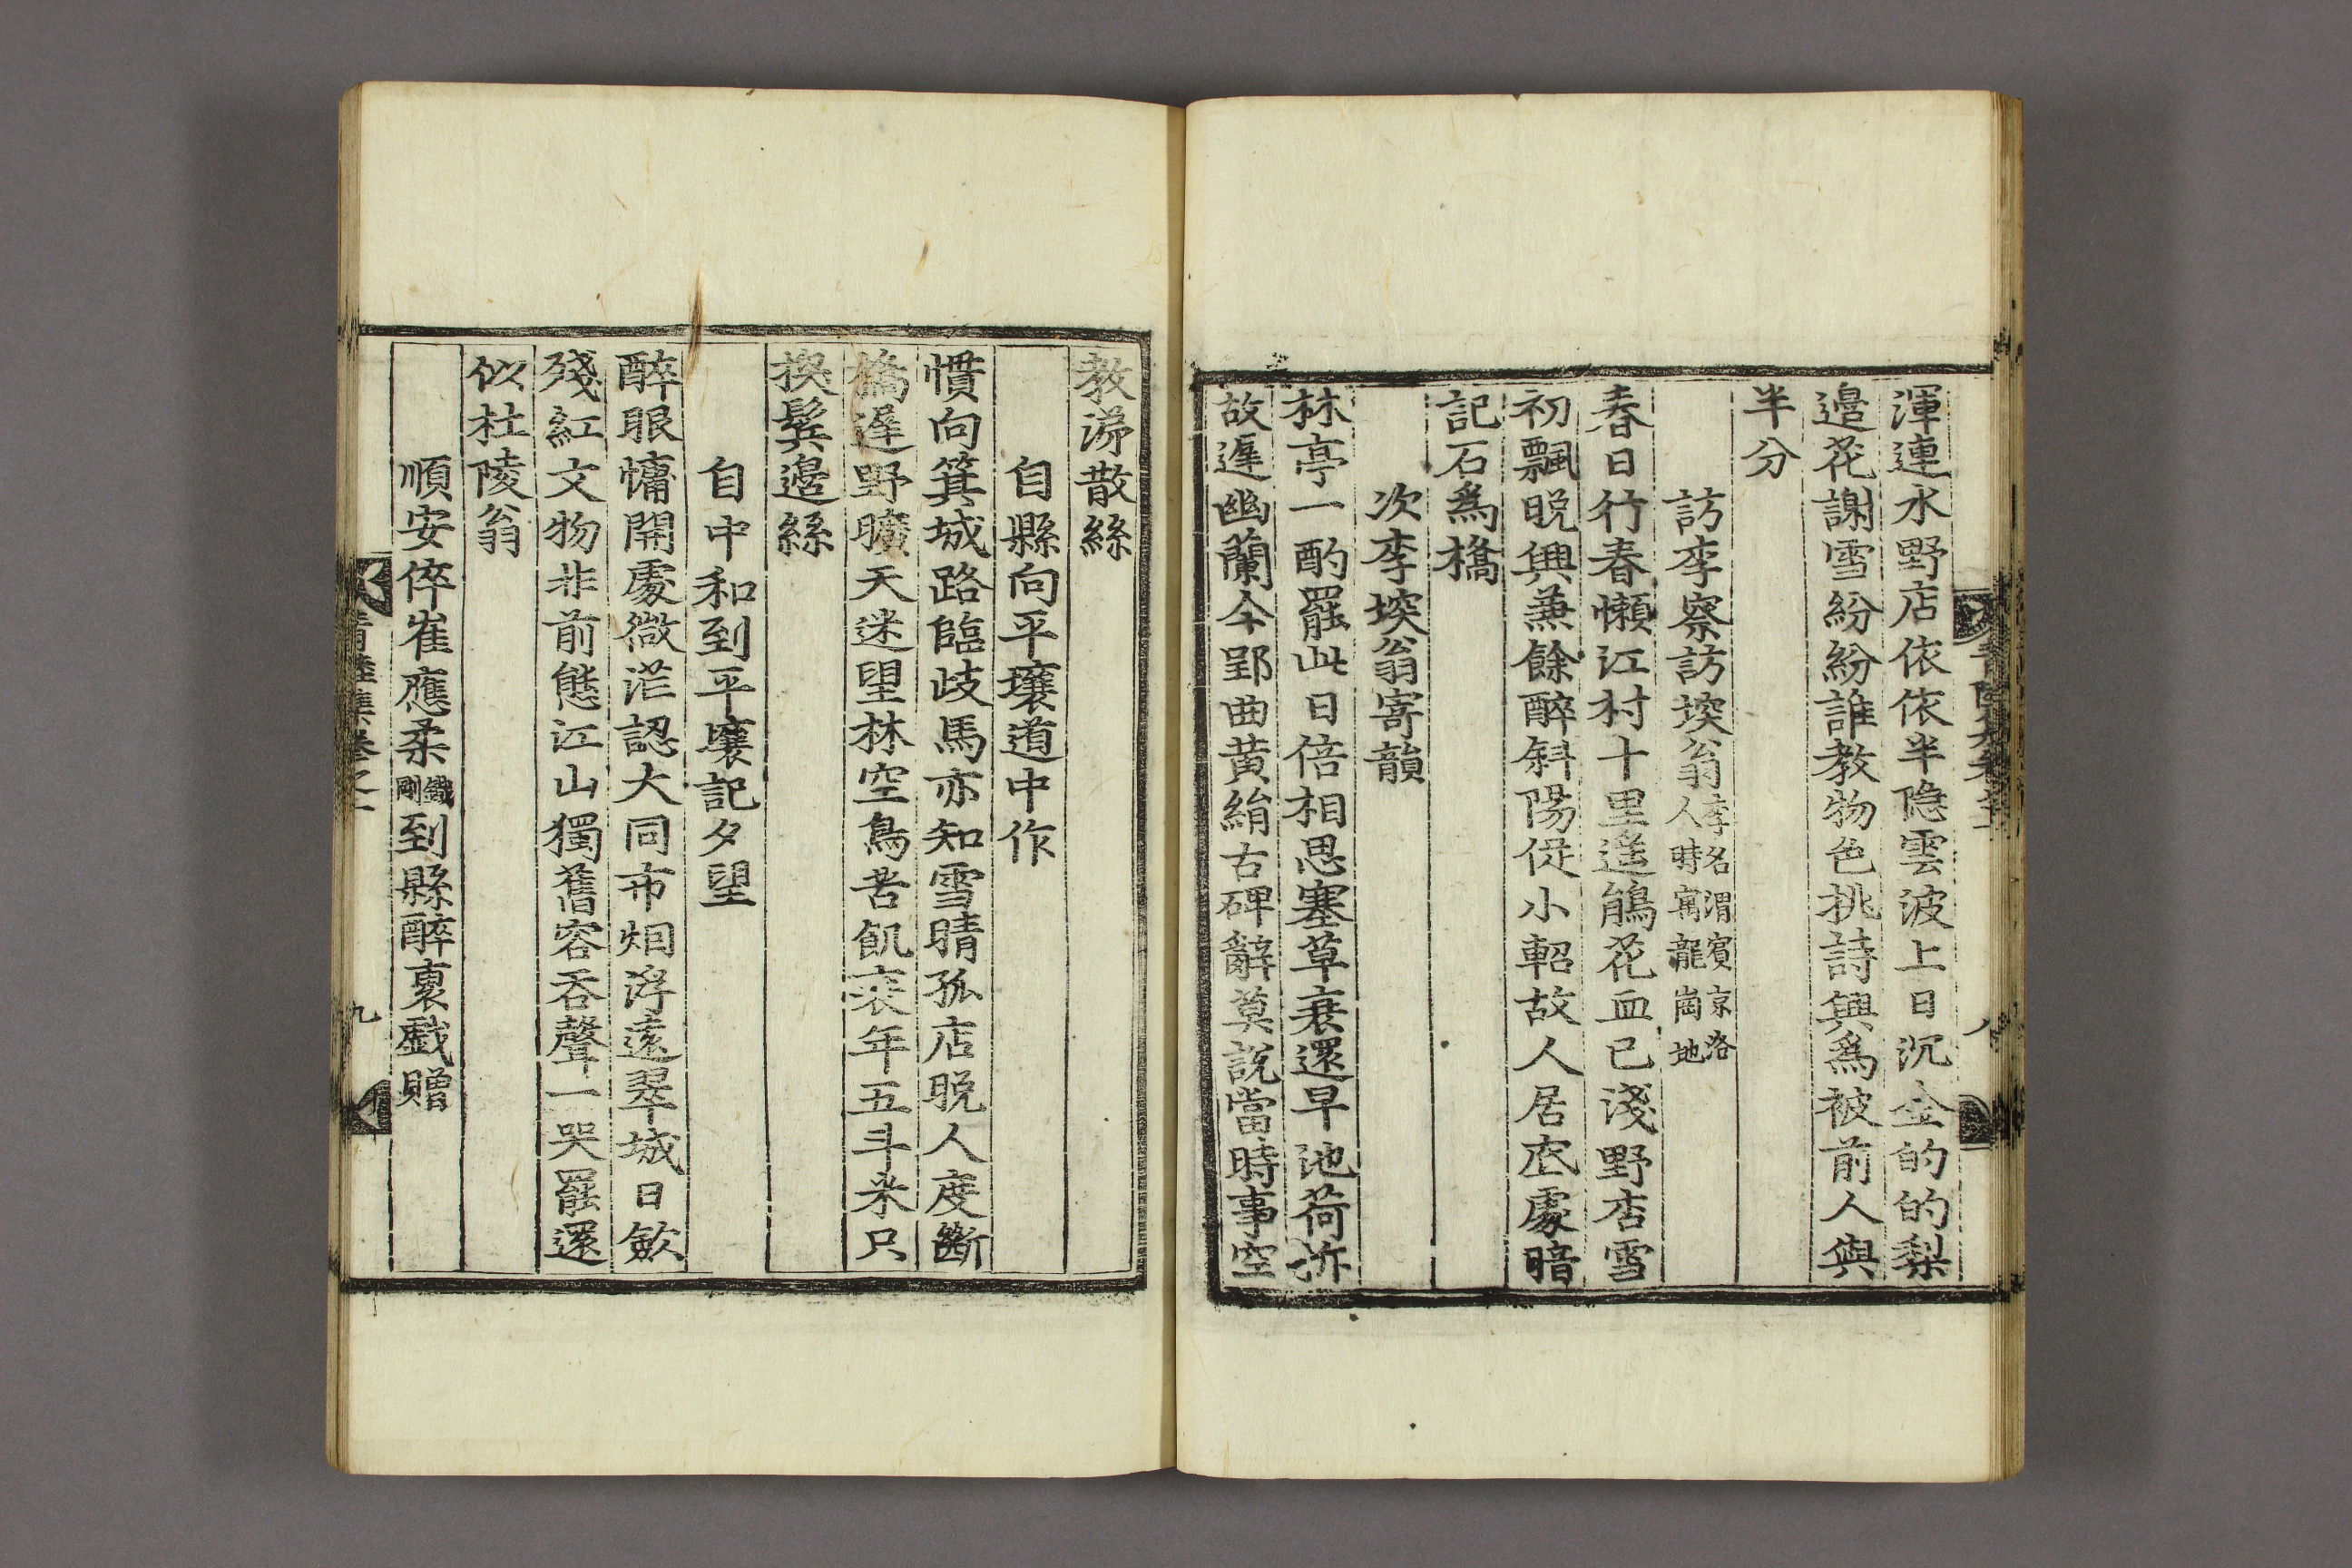 渾連水野店依依半隐雲波上日沉金的的梨
邉花謝雪紛紛誰教物色挑詩興爲被前人與
半分
訪李察訪堗翁李名渭賓京洛人時寓龍崗地
春日行春懶江村十里遥鵑花血已淺野杏雪
初飄晩興兼餘醉斜陽促小軺故人居在處暗
記石爲橋
次李堗翁寄韻
林亭一酌罷此日倍相思塞草衰還早池荷
故遲幽蘭今郢曲黄絹古碑辭莫說當時事空
教涕散絲
自縣向平壤道中作
慣向箕城路臨歧馬亦知雪晴孤店晩人度斷
橋遲野曠天迷望林空鳥苦飢衰年五斗米只
換鬂邉絲
自中和到平壤記夕望
醉眼慵開處微茫認大同市烟浮遠翠城日斂
殘紅文物非前態江山獨舊容吞聲一哭罷還
似杜陵翁
順安倅崔應柔鐵剛到縣醉裏戲贈
青陸集卷之二 八
青陸集卷之二 九